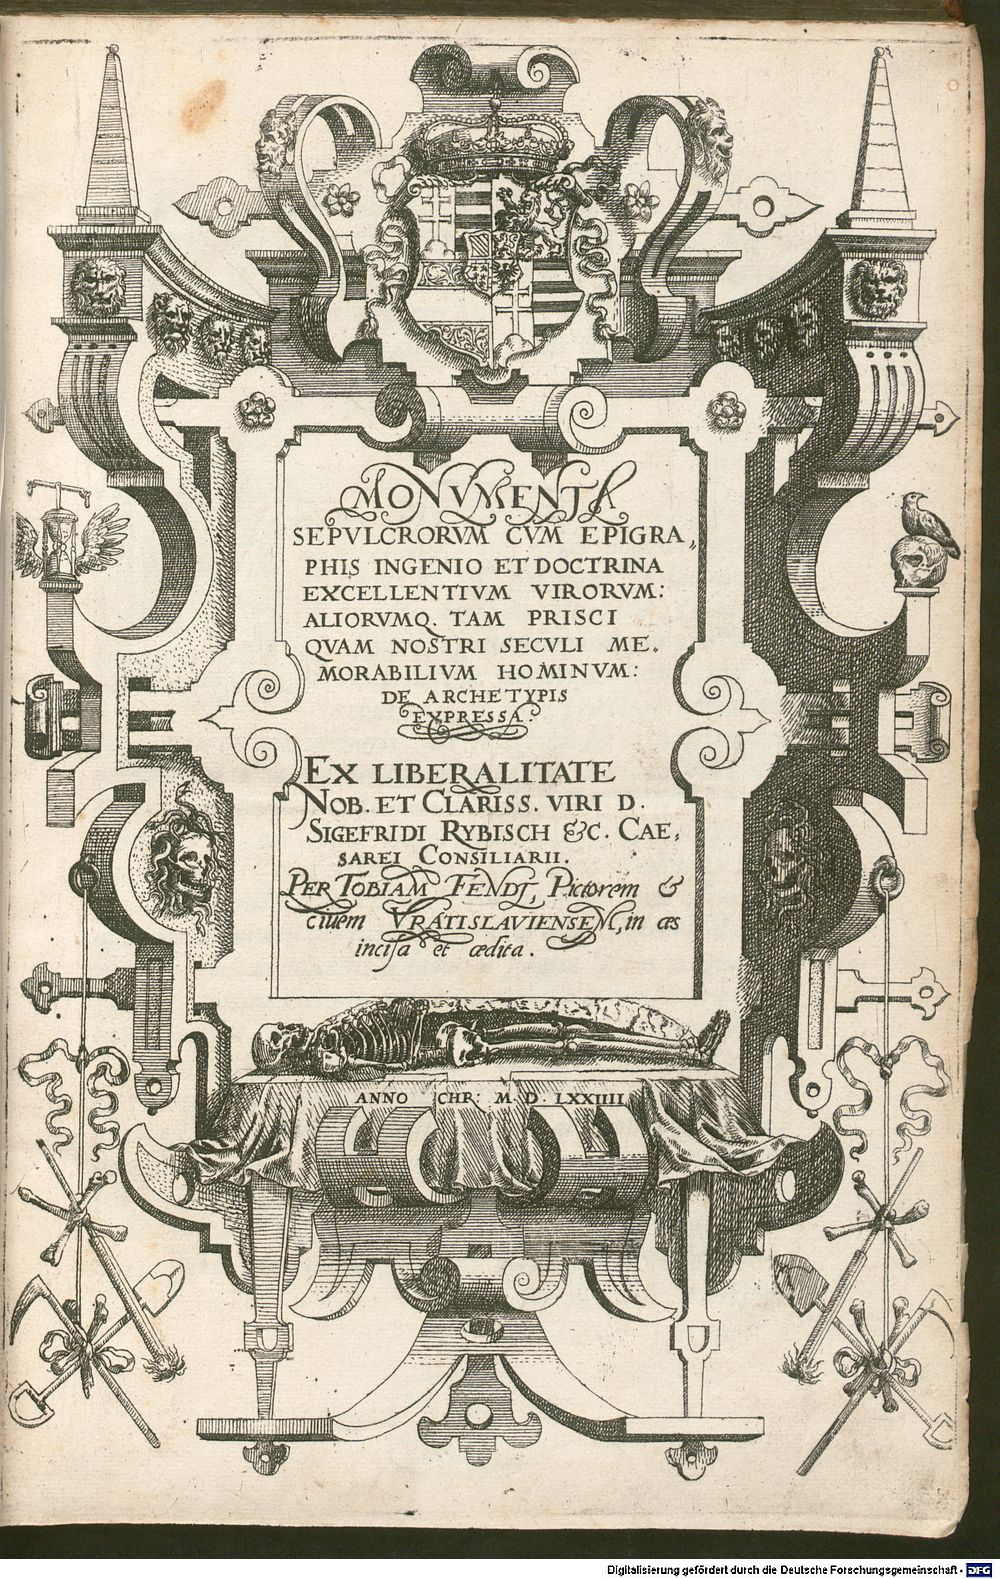 MONVMENTA
SEPVLCRORVM CVM EPIGRA,,
PHIS INGENIO ET DOCTRINA
EXCELLENTIVM VIRORVM:
ALIORVMQ. TAM PRISCI
QVAM NOSTRI SECVLI ME,
MORABILIVM HOMINVM:
DE ARCHETYPIS
EXPRESSA.
EX LIBERALITATE
NOB. ET CLARISS. VIRI D.
SIGEFRIDI RYBISCH &C. CAE,
SAREI CONSILIARII.
PER TOBIAM FENDT, Pictorem &
ciuem VRATISLAVIENSEM, in æs
incisa et ædita.
ANNO CHR: M D. LXXIIII
Digitalisierung gefördert durch die Deutsche Forschungsgemeinschaft - DFG